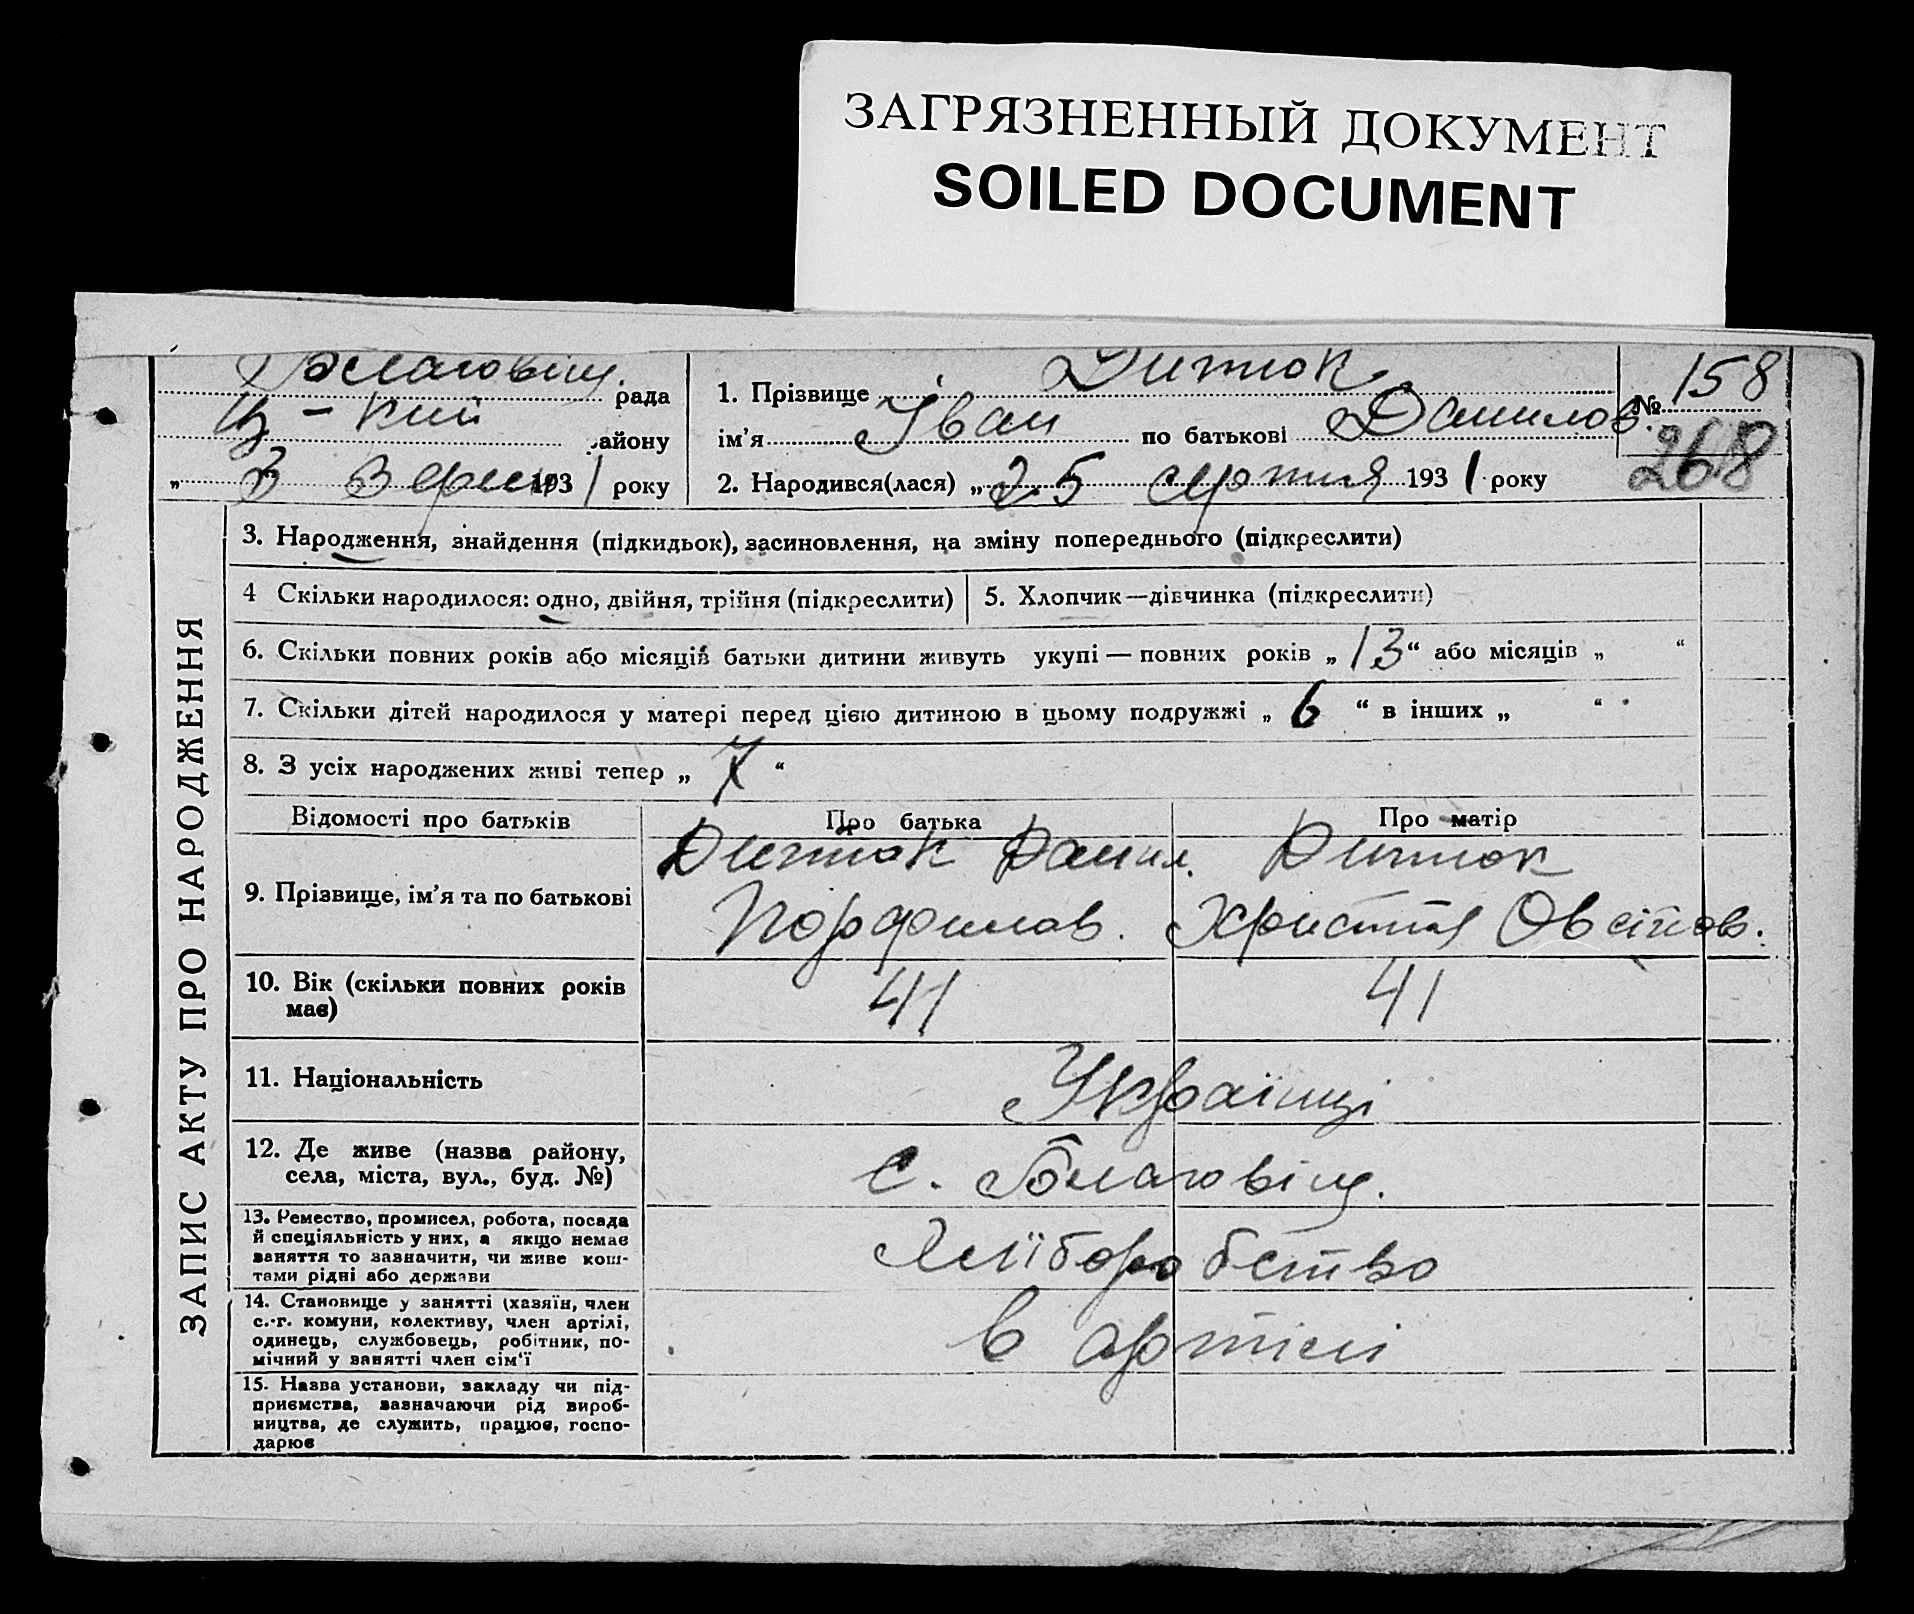 ЗАГРЯЗНЕННЫЙ ДОКУМЕНТ
SOILED DOCUMENT
Благовіщ. рада
Ц-кий району
„ 3 Верес 1931 року
1. Прізвище Дитюк
ім’я Іван по батькові Данилов.
2. Народився(лася) „ 25 серпня 1931 року
№ 158
268
ЗАПИС АКТУ ПРО НАРОДЖЕННЯ
3. Народження, знайдення (підкидьок), засиновлення, на зміну попереднього (підкреслити)
4 Скільки народилося: одно, двійня, трійня (підкреслити)
5. Хлопчик—дівчинка (підкреслити)
6. Скільки повних років або місяців батьки дитини живуть укупі — повних років „ 13 “ або місяців „ “
7. Скільки дітей народилося у матері перед цією дитиною в цьому подружжі „ 6 “ в інших „ “
8. З усіх народжених живі тепер „ 7 “
Відомості про батьків
Про батька
Про матір
9. Прізвище, ім’я та по батькові
Дитюк Данил.
Порфилов.
Дитюк
Христя Овсійов.
10. Вік (скільки повних років
має)
41
41
11. Національність
Українці
12. Де живе (назва району,
села, міста, вул., буд. №)
с. Благовіщ.
13. Ремество, промисел, робота, посада
й специяльність у них, а якщо немає
заняття то зазначити, чи живе кош-
тами рідні або держави
Хліборобство
14. Становище у занятті (хазяїн, член
с.-г. комуни, колективу, член артілі,
одинець, службовець, робітник, по-
мічний у занятті член сім’ї
в артілі
15. Назва установи, закладу чи під-
приємства, зазначаючи рід вироб-
ництва, де служить, працює, госпо-
дарює